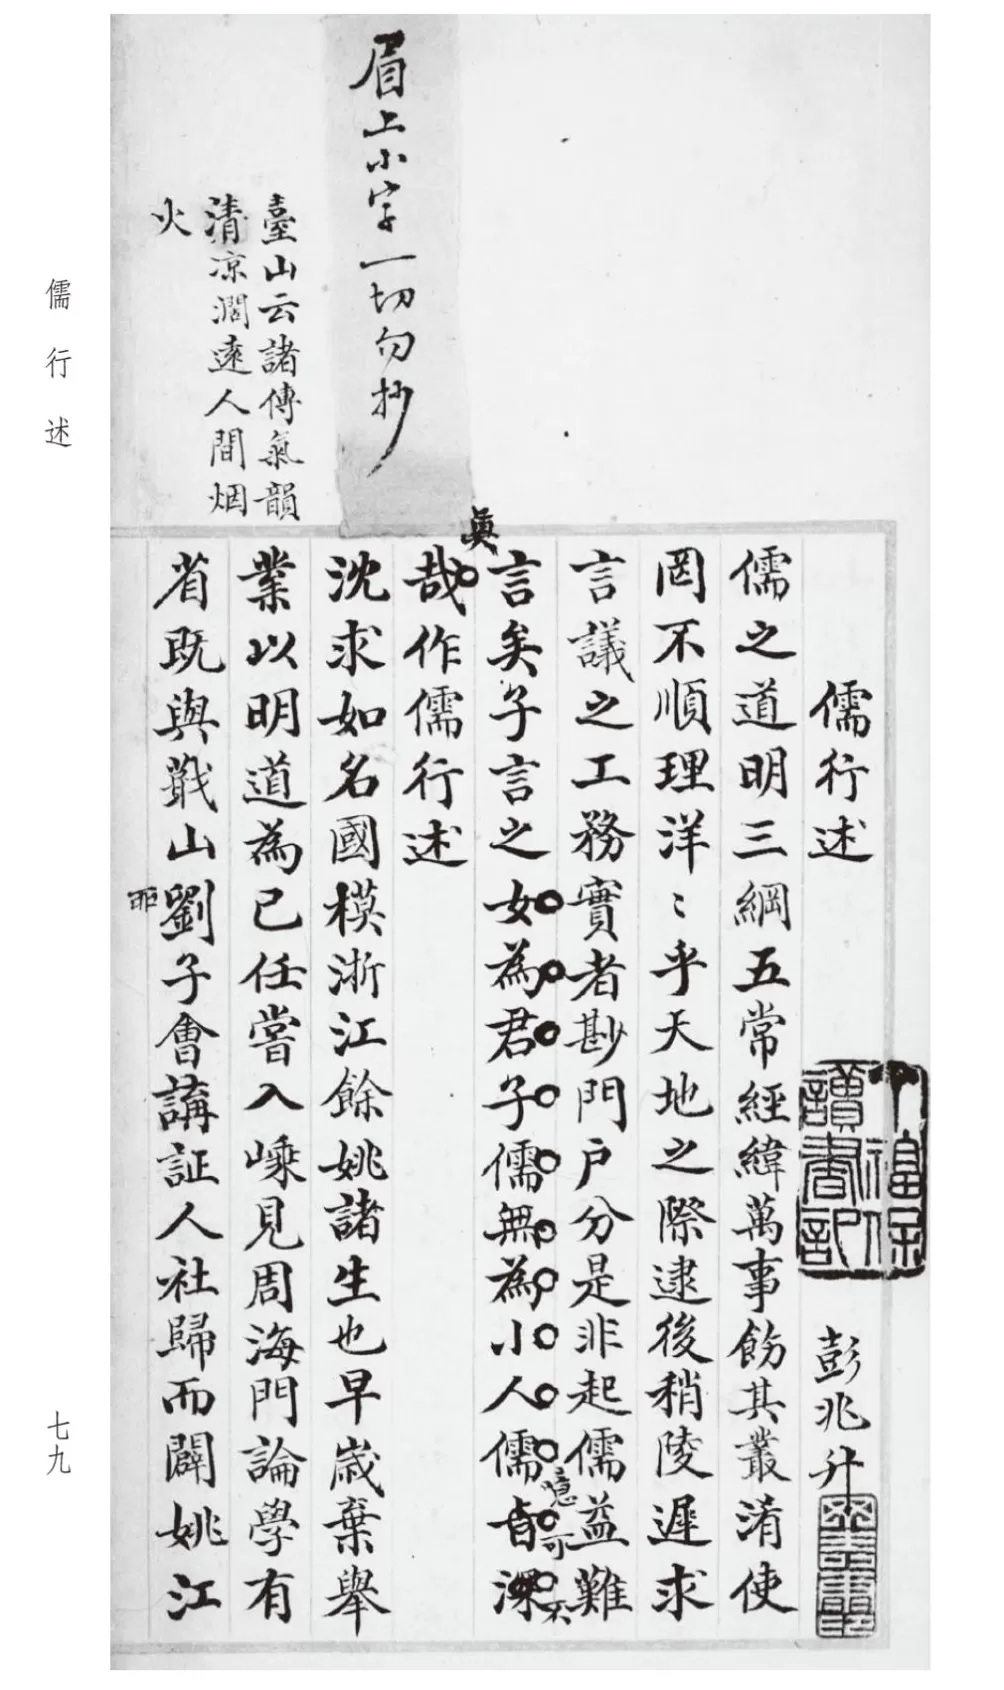 儒行述
七九
眉上小字一切勿抄
臺山云諸傳氣韻
清凉濶遠人間烟
火
儒行述
彭兆升
讀書記
儒之道明三綱五常經緯萬事飭其叢淆使
罔不順理洋〻乎天地之際逮後稍陵遲求
言議之工務實者尠門戶分是非起儒益難
言矣子言之女為君子儒無為小人儒
噫可不
真
哉作儒行述
沈求如名國模浙江餘姚諸生也早歲棄舉
業以明道為己任嘗入嵊見周海門論學有
省既與戢山劉子會講証人社歸而闢姚江